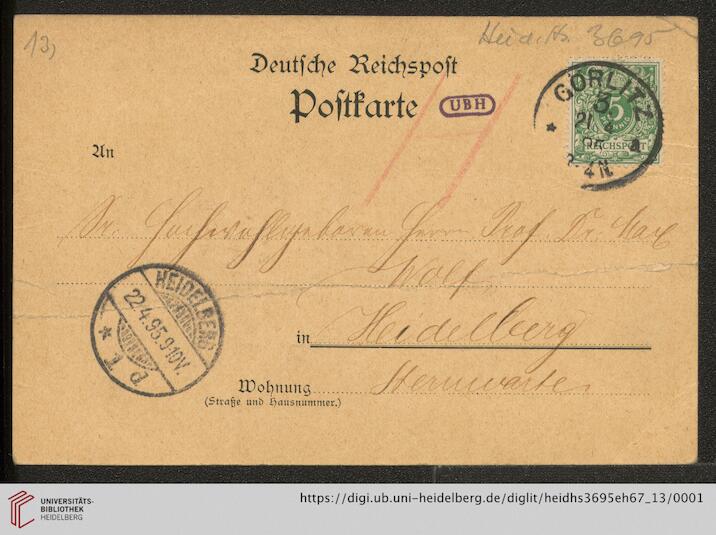 13)
Heid. Hs. 3695
Deutsche Reichspost
Postkarte
UBH
GÖRLITZ
5
REICHSPOST
An
Sr. Hochwohlgeboren Herrn Prof. Dr. Max
Wolf
HEIDELBERG
22.4.95.9-10V.
in Heidelberg
Wohnung Sternwarte
(Straße und Hausnummer.)
UNIVERSITÄTS-
BIBLIOTHEK
HEIDELBERG
https://digi.ub.uni-heidelberg.de/diglit/heidhs3695eh67_13/0001